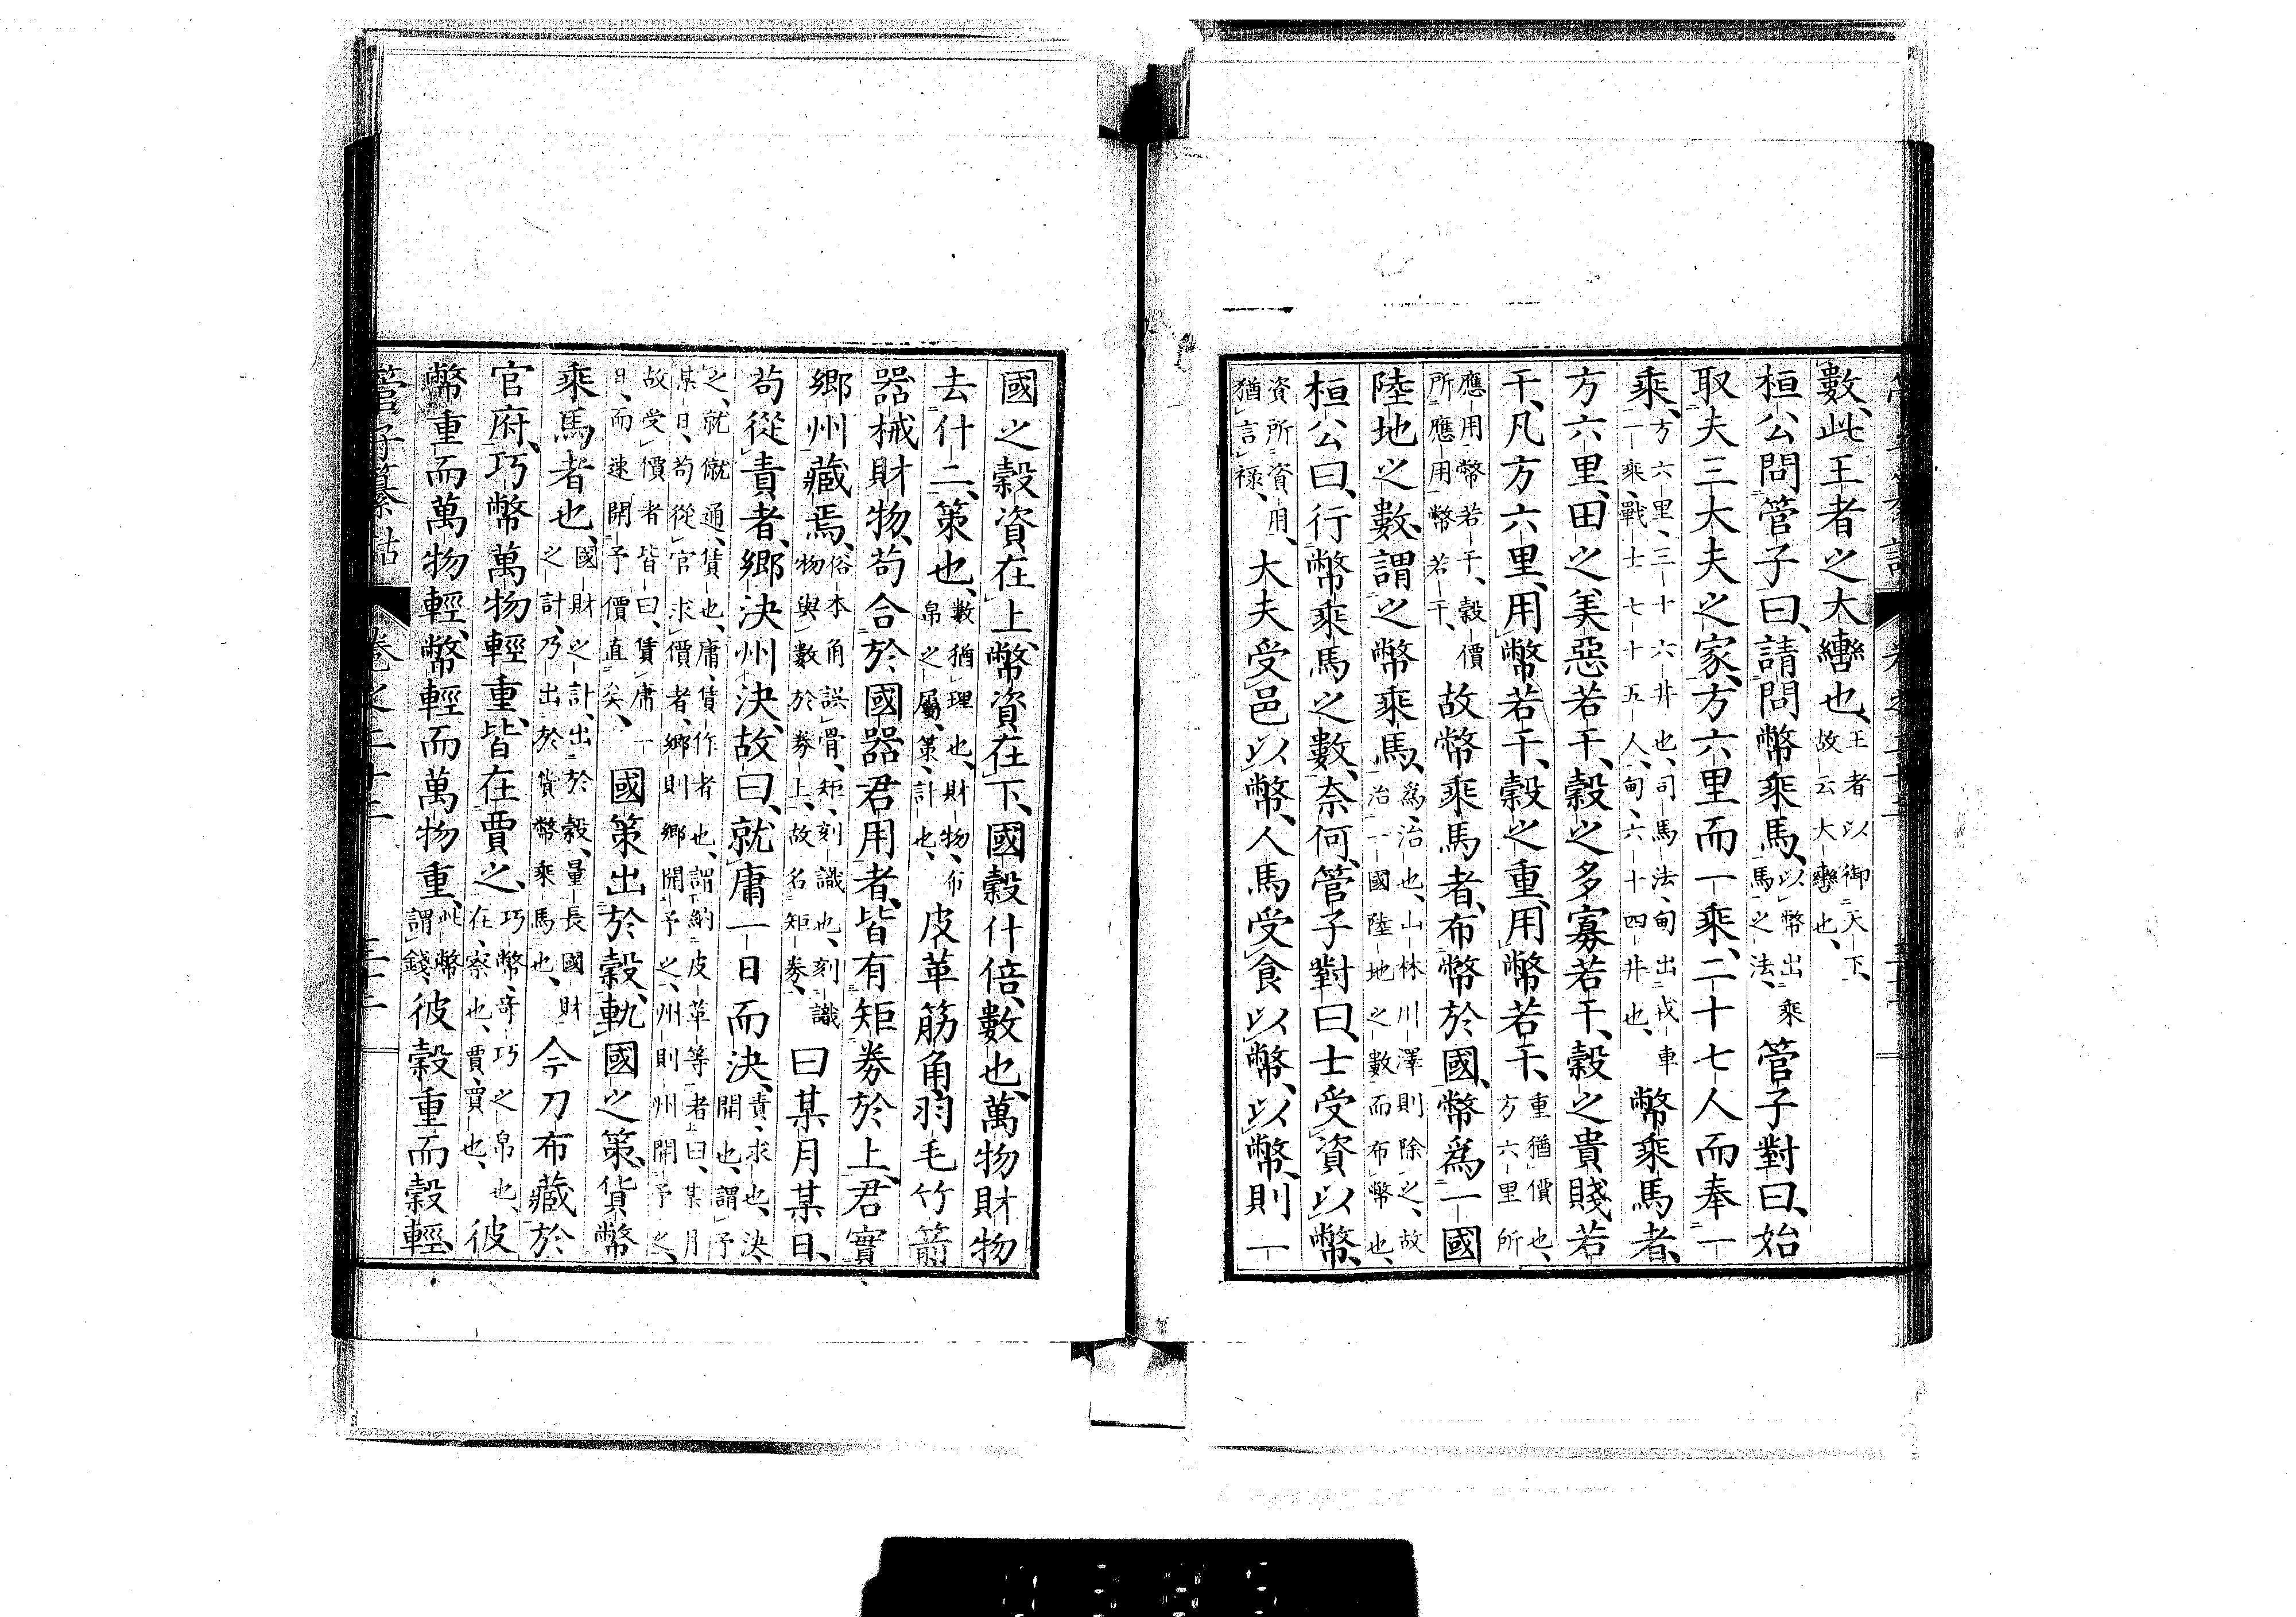 數、此王者之大轡也、王者以御天下、故云大轡也、
桓公問管子曰、請問幣乘馬、以幣出乘馬之法、管子對曰、始
取夫三大夫之家、方六里而一乘、二十七人而奉一
乘、方六里、三十六井也、司馬法、甸出戎車一乘、戰士七十五人、甸、六十四井也、幣乘馬者、
方六里、田之美惡若干、穀之多寡若干、穀之貴賤若
干、凡方六里、用幣若干、穀之重、用幣若干、重猶價也、方六里所
應用幣若干、穀價所應用幣若干、故幣乘馬者、布幣於國、幣爲一國
陸地之數、謂之幣乘馬、爲、治也、山林川澤則除之、故治一國陸地之數而布幣也、
桓公曰、行幣乘馬之數、奈何、管子對曰、士受資以幣、
資所資用、猶言祿、大夫受邑以幣、人馬受食以幣、以幣、則一
國之穀資在上、幣資在下、國穀什倍、數也、萬物財物
去什二、策也、數猶理也、財物、布帛之屬、策、計也、皮革筋角羽毛竹箭
器械財物、苟合於國器君用者、皆有矩券於上、君實
鄉州藏焉、俗本角誤骨、矩、刻識也、刻識物與數於券上、故名矩券、曰某月某日、
苟從責者、鄉決州決、故曰、就庸一日而決、責、求也、決、開也、謂予
之、就、僦通、賃也、庸、賃作者也、謂納皮革等者曰、某月某日、苟從官求價者、鄉則鄉開予之、州則州開予之、
故受價者皆曰、賃庸一日、而速開予價直矣、國策出於穀、軌國之策、貨幣
乘馬者也、國財之計、出於穀、量長國財之計、乃出於貨幣乘馬也、今刀布藏於
官府、巧幣萬物輕重、皆在賈之、巧幣、奇巧之帛也、在、察也、賈、賈也、彼
幣重而萬物輕、幣輕而萬物重、此幣謂錢、彼穀重而穀輕、
管子纂詁 卷之二十二